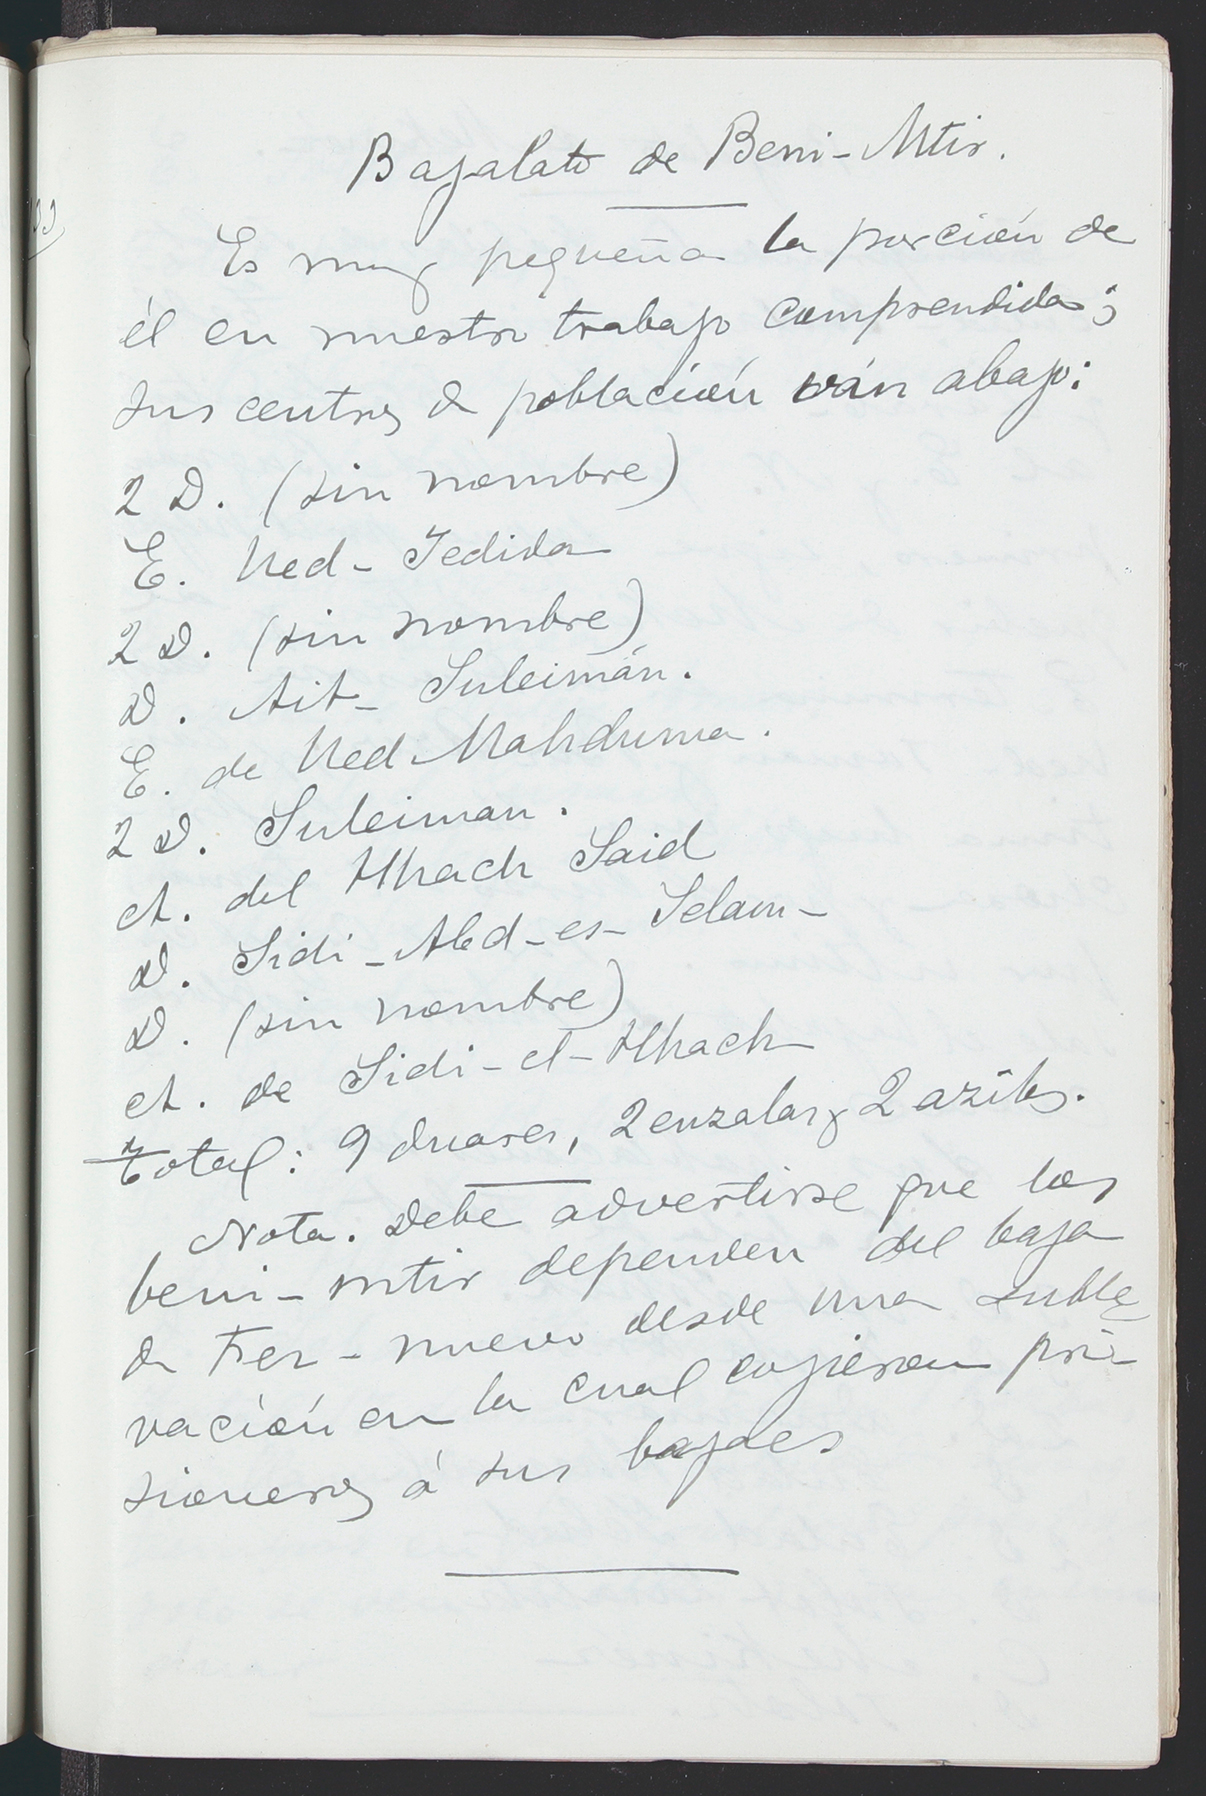 Bajalato de Beni-Mtir.
Es muy pequeña la porción de
él en nuestro trabajo comprendida;
sus centros de población ván abajo:
2 D. (sin nombre)
E. Ued-Jedida
2 D. (sin nombre)
D. Ait-Suleimán.
E. de Ued Mahduma.
2 D. Suleiman.
A. del Hhach Said
D. Sidi-Abd-es-Selam-
D. (sin nombre)
A. de Sidi-el-Hhach
Total: 9 duares, 2 enzalas y 2 azibs.
Nota. Debe advertirse que los
beni-mtir dependen del baja
de Fez-nuevo desde una suble-
vación en la cual cojieron pri-
sioneros á sus bajaes